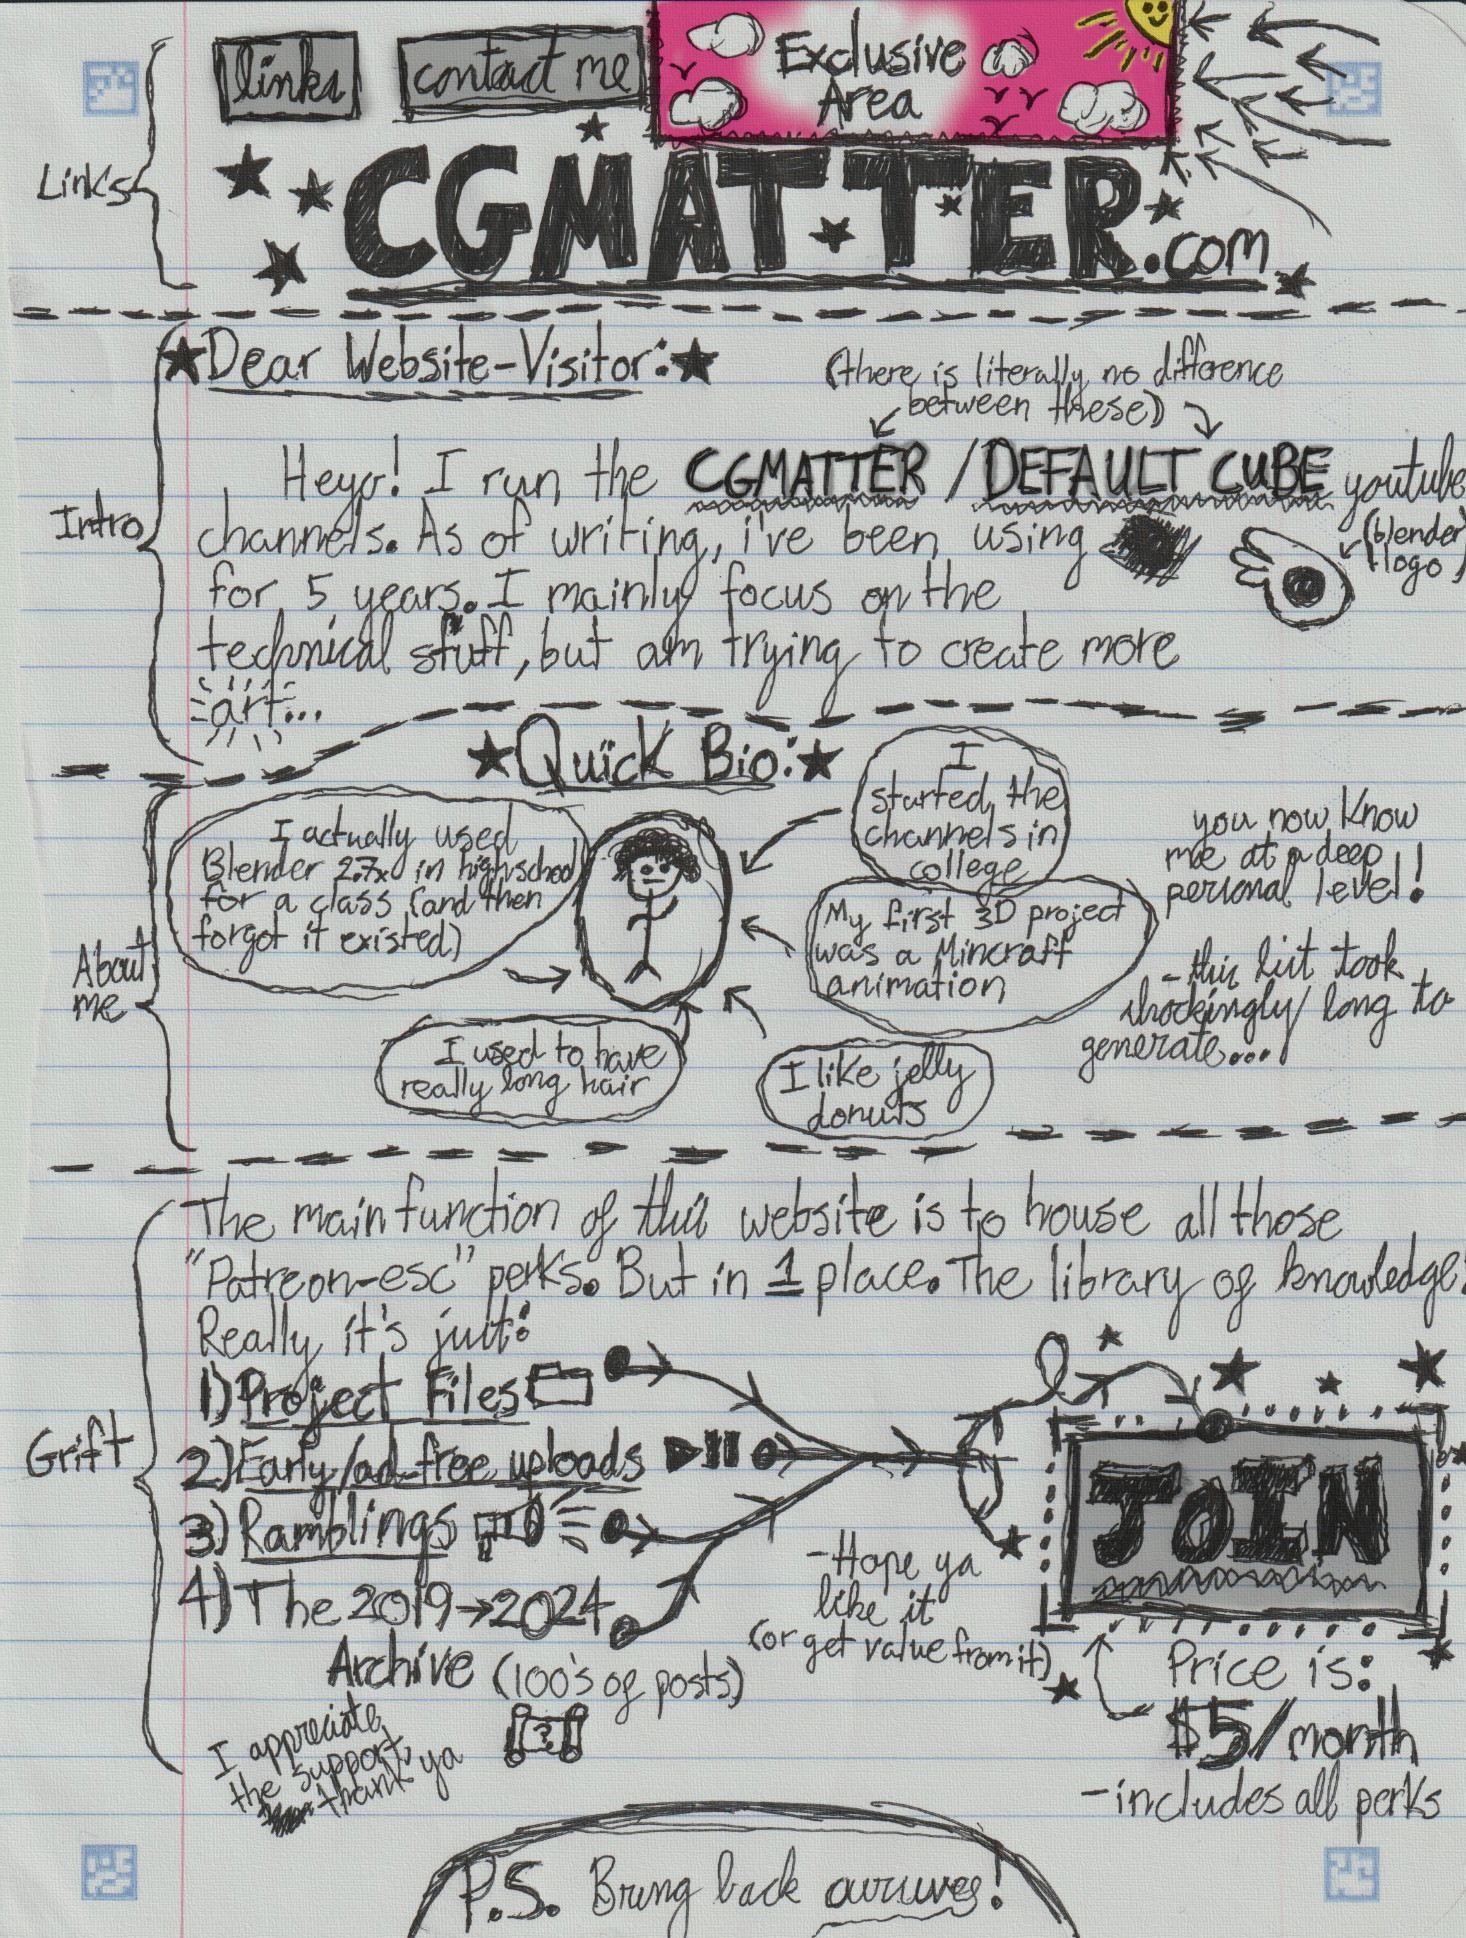 links
contact me
Exclusive
Area
Links
CGMATTER.com
Dear Website-Visitor:
(there is literally no difference
between these)
Intro
Heyo! I run the CGMATTER / DEFAULT CUBE youtube
channels. As of writing, i've been using
(blender
logo)
for 5 years. I mainly focus on the
technical stuff, but am trying to create more
art...
Quick Bio:
About
me
I actually used
Blender 2.7x in highschool
for a class (and then
forgot it existed)
I
started the
channels in
college
My first 3D project
was a Mincraft
animation
I used to have
really long hair
I like jelly
donuts
you now know
me at a deep
personal level!
- this list took
shockingly long to
generate...
Grift
The main function of this website is to house all those
"Patreon-esc" perks. But in 1 place. The library of knowledge.
Really it's just:
1) Project Files
2) Early/ad-free uploads
3) Ramblings
4) The 2019→2024
Archive (100's of posts)
?
I appreciate
the support,
thank ya
- Hope ya
like it
(or get value from it)
JOIN
Price is:
$5/month
- includes all perks
P.S. Bring back!